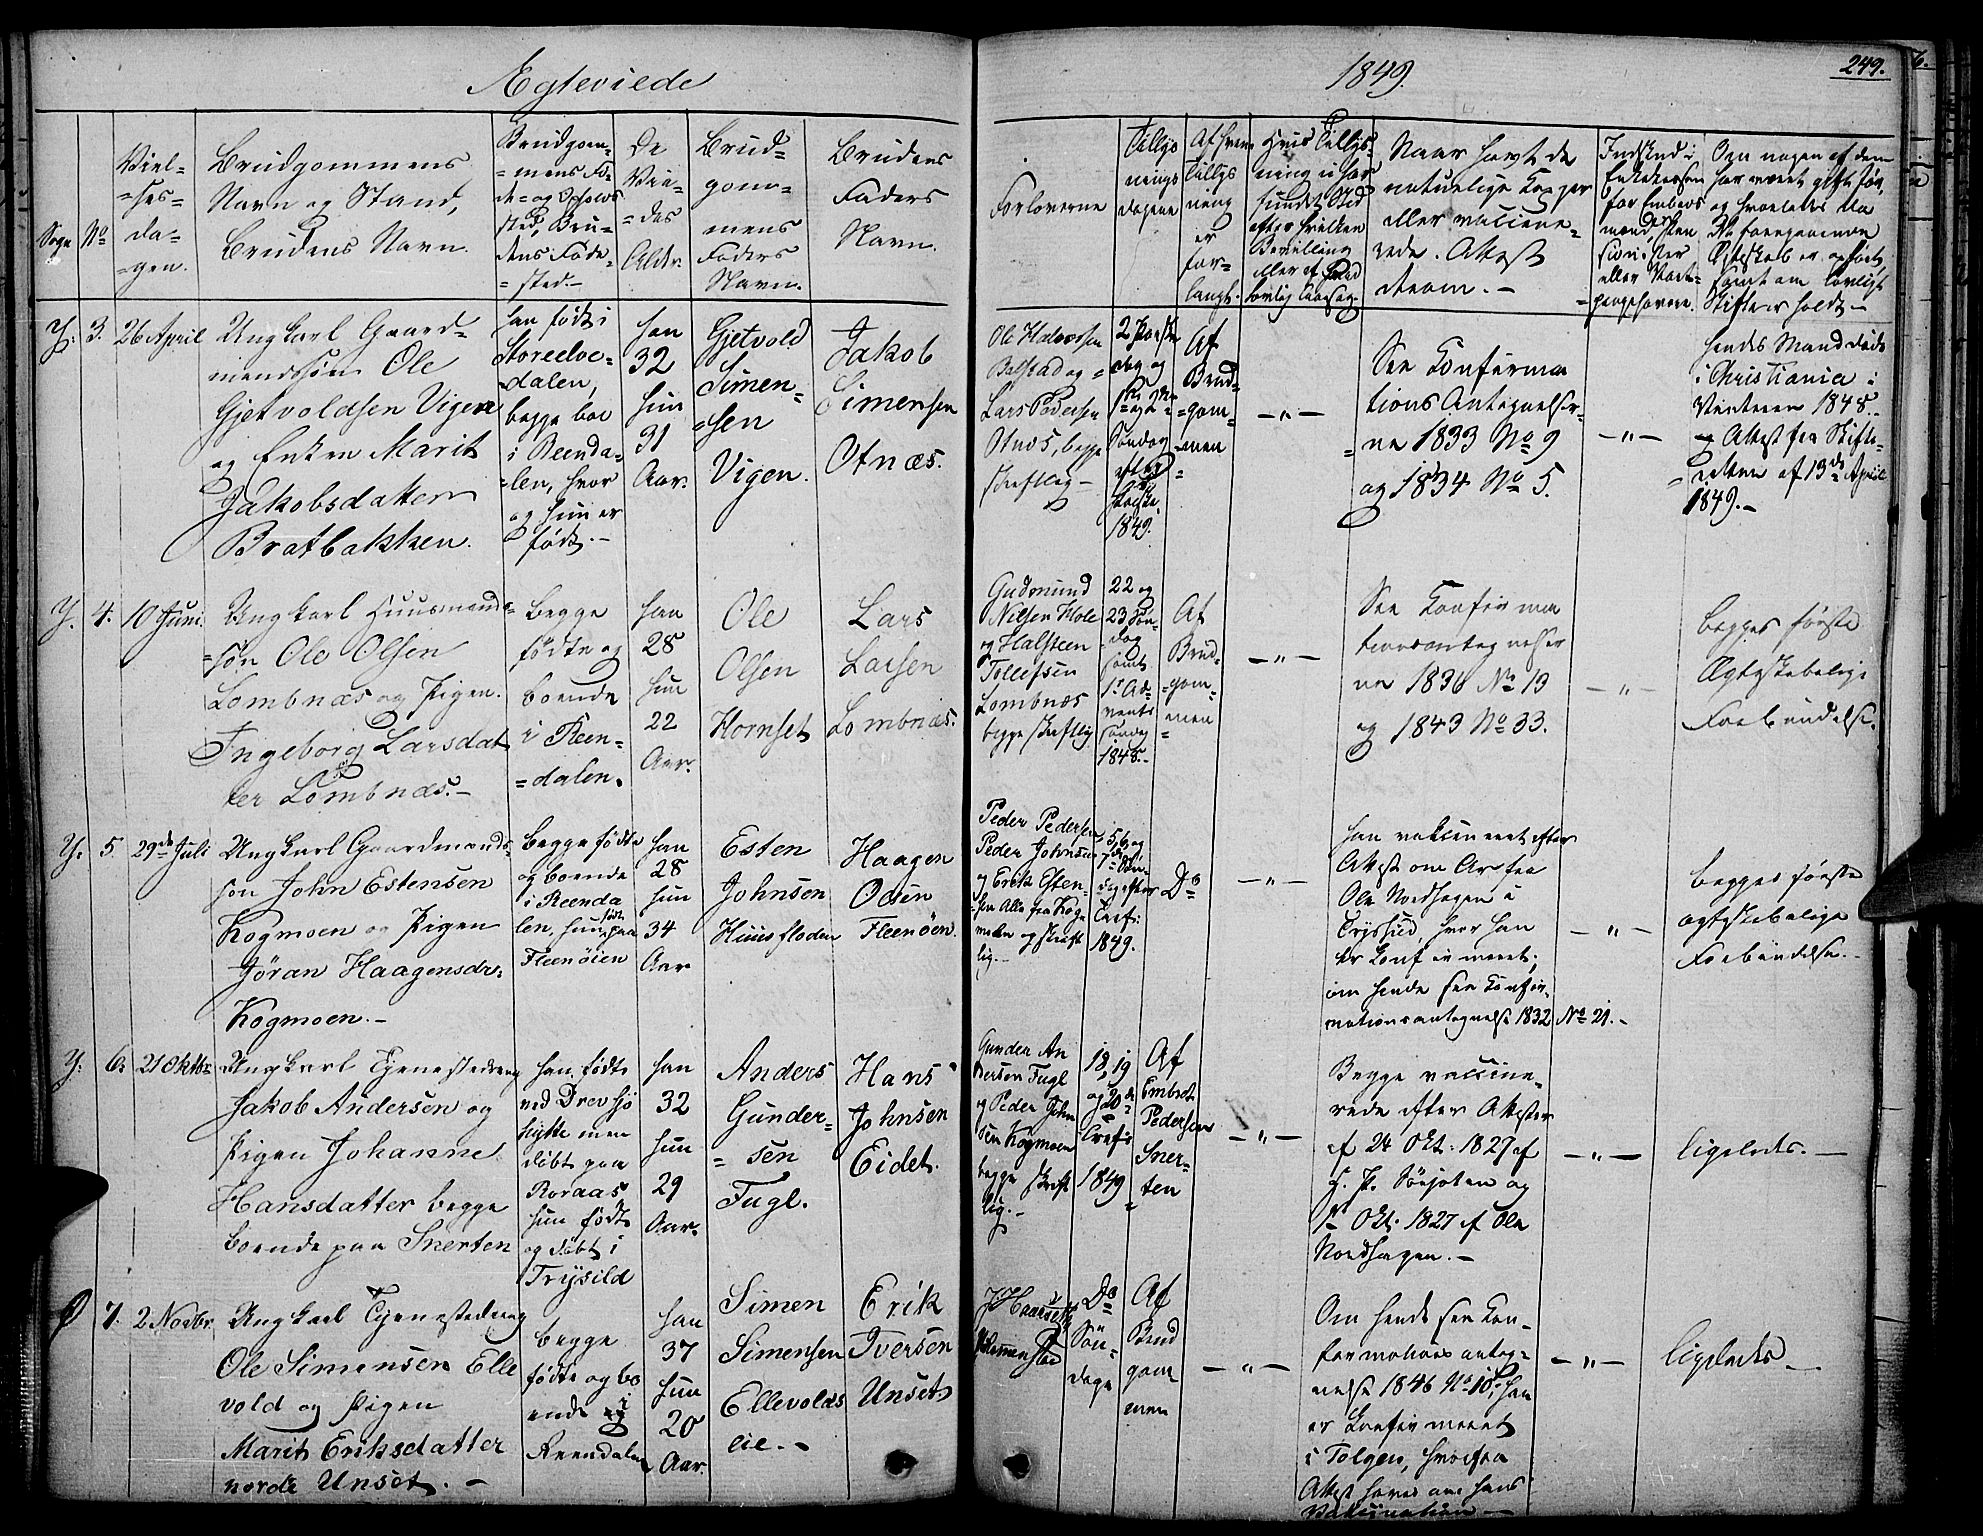 Egteviede
1849.
249.
Sogn
No
Viel-
=ses-
da-
=gen.
Brudgommens
Navn og Stand,
Brudens Navn.
Brudgom-
=mens Fø-
de= og Opholds
sted, Bru-
dens Føde-
=sted.-
De
Vie-
=des
Alder.
Brud=
gom=
mens
Faders
Navn.
Brudens
Faders
Navn.
Forloverne
Tillys
nings
dagene
Af hvem
Tillys
ning
er
for-
langt.
Hvis Tillys-
ning ei har
fundet Sted
efter hvilken
Bevilling
eller af hvad
lovlig Aarsag.
Naar havt de
naturlige Kopper
eller vaccine-
rede. Attest
derom.-
Indskud i
Enkekassen
for Embeds
mænd,
eller Vart-
penge havere.
Om nogen af dem
har været gift før,
og hvorledes da
De foregaaende
Ægteskab er ophørt,
samt om lovligt
Skifte er holdt-
Y. 3. 26 April
Ungkarl Gaard-
mandssøn Ole
Gjetvoldsen Vigen
og Enken Marit
Jakobsdatter
Bratbakken.
han født i
Storeelve-
=dalen,
begge boe
i Reenda-
=len, hvor
og hun er
født.-
han
32
hun
31
Aar.
Gjetvold
Simen-
=sen
Vigen.
Jakob
Simensen
Otnæs.
Ole Halvorsen
Bolstad og
Lars Pedersen
Otnæs, begge
skriftlig-
Søndag
efter
Paaske
1849.
Af
Brud=
=gom-
=men
-"-
See Konfirma
tions Antegnelser-
ne 1833 No 9
og 1834 No 5.
-"-
hendes Mand døde
i Christiania i
Vinteren 1848.
og Attest fra Skifte-
retten af 13de April
1849.-
Y. 4. 10 Juni.
Ungkarl Huusmands-
=søn Ole Olsen
Lombnæs og Pigen
Ingeborg Larsdat
ter Lombnæs.-
begge
fødte og
boende
i Reen-
=dalen.
han
28
hun
22
Aar.
Ole
Olsen
Hornset
Lars
Larsen
Lombnæs.
Gudmund
Nilsen Hole
og Halsteen
Tollefsen
Lombnæs
begge skriftlig
22 og
23 Søn-
dag
samt
1ste Ad-
vents
søndag
1848.-
Af
Brud-
=gom-
men
-"-
See Konfirma
tionsantegnelser
ne 1836 No 13
og 1843 No 33.
-"-
begges første
Ægteskabelige
Forbindelse.
Y. 5. 29de Juli
Ungkarl Gaardmands-
søn John Estensen
Kogmoen og Pigen
Jøran Haagensdr-
Kogmoen.-
begge fødte
og boende
i Reenda
len, hun født paa
Fleenøien
han
28
hun
34
Aar
Esten
Johnsen
Huusfloden
Haagen
Odsen
Fleenøen.
Peder Pedersen
Peder Johnsen
og Erik Esten-
sen Alle fra Kog-
moen og skrift
lig.-
5, 6 og
7de Søn-
dag efter
Tref:
1849.
Do
-"-
han vaksineret efter
Attest om Ar fra
Ole Nordhagen i
Trysild, hvor han
er konfirmeret;
om hende see Konfir-
mationsantegnelse 1832 No 21.-
-"-
begges første
ægteskabelige
Forbindelse.-
Y. 6. 21 Oktbr
Ungkarl Tjenestedreng
Jakob Andersen og
Pigen Johanne
Hansdatter begge
boende paa Snerten
han fødte
ved Drevsjø
hytte men
døbt paa
Roraas
hun født
og døbt i
Trysild
han
32
hun
29
Aar.
Anders
Gunder-
=sen
Fugl.
Hans
Johnsen
Eidet.
Gunder An
dersen Fugl
og Peder John
sen Kogmoen
begge skrift
lig.-
18, 19
og 20de
Trefs
1849
Af
Embret
Pedersen
Sner-
ten
-"-
Begge vaccine-
rede efter Attester
af 24 Okt: 1827 af
Okt. 1827 af Ole
Nordhagen.-
-"-
ligeledes.-
7. 2 Novbr.
Ungkarl Tjenestedreng
Ole Simensen Elle
vold og Pigen
Marit Eriksdatter
nordr Unset.-
begge
fødte og bo
ende i
Reendalen
han
37
hun
20
Aar.
Simen
Simensen
Ellevolds
eie.-
Erik
Iversen
Unset
Do
Søn-
dage
Af
Brud
gom
men
-"-
Om hende see Kon-
firmations anteg-
nelse 1846 No 10, han
er konfirmeret
i Tolgen, hvorfra
Attest haves om hans
Vaksination-
-"-
ligeledes-